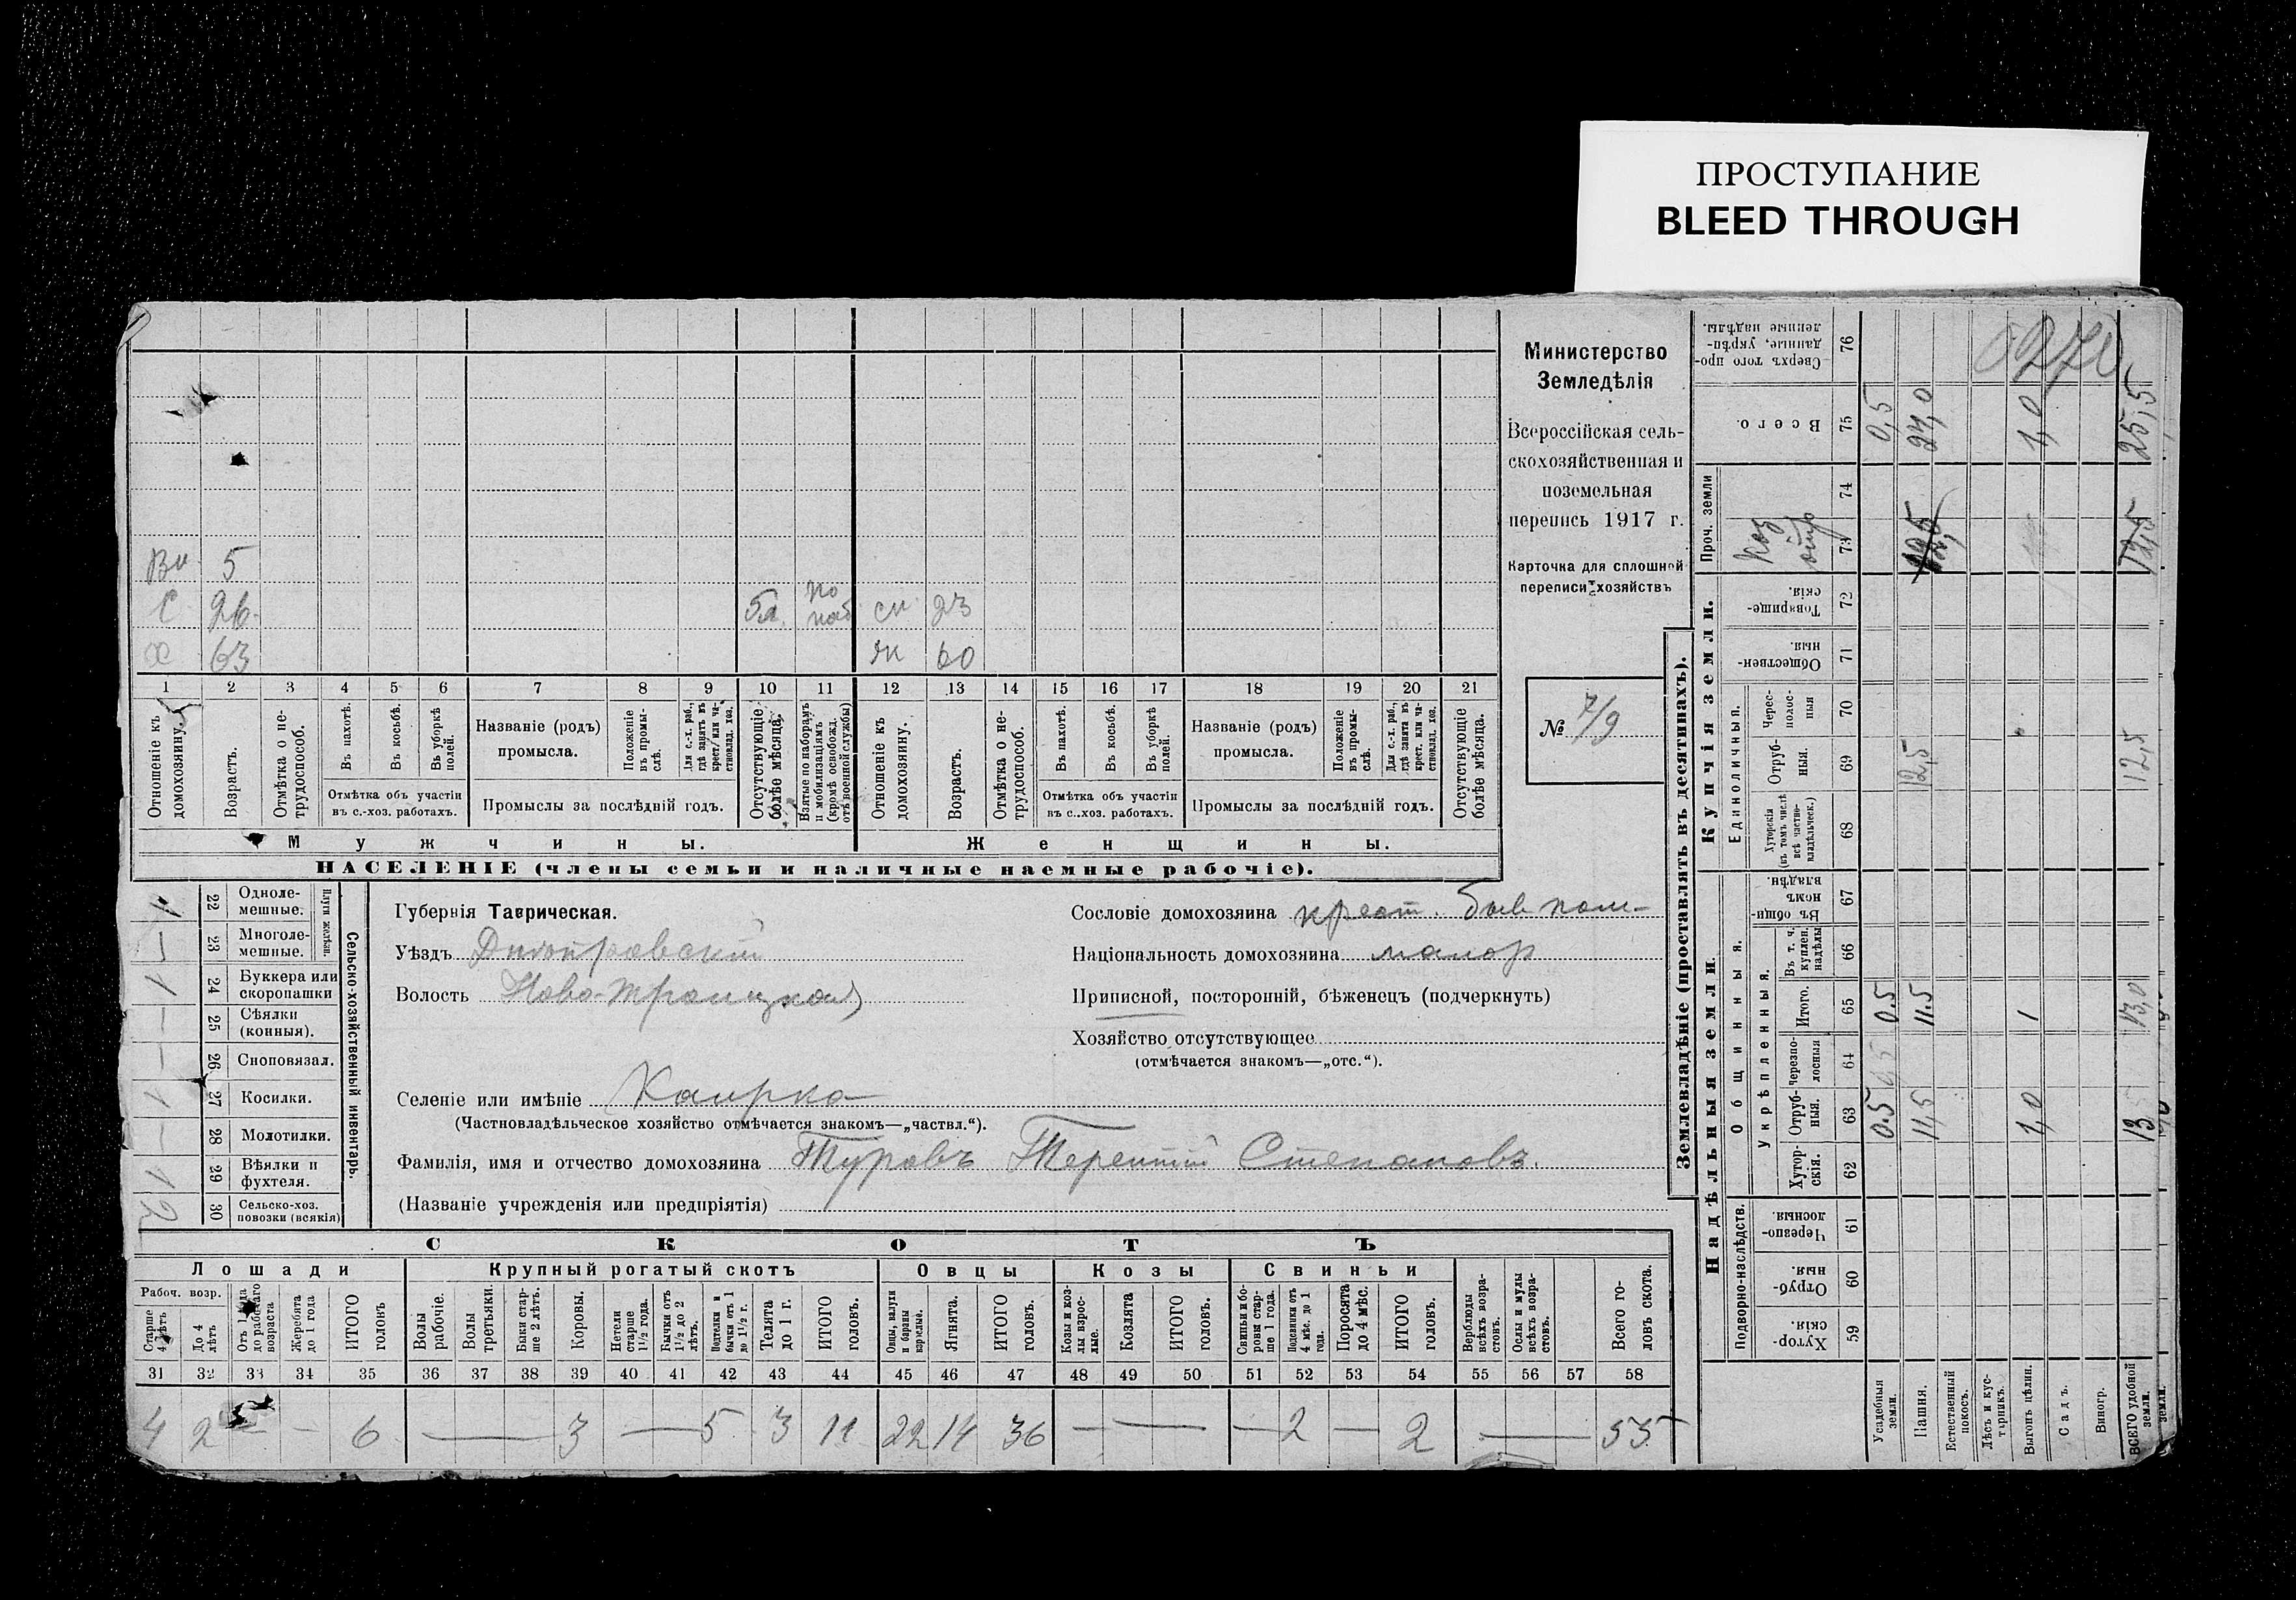 ПРОСТУПАНИЕ
BLEED THROUGH
Вн 5
С 26 5л. по наб сн 23
х 63 жн 60
1 2 3 4 5 6 7 8 9 10 11 12 13 14 15 16 17 18 19 20 21
Отношеніе къ домохозяину.
Возрастъ.
Отмѣтка о нетрудоспособ.
Въ пахотѣ.
Въ косьбѣ.
Въ уборкѣ полей.
Отмѣтка объ участіи
въ с.-хоз. работахъ.
Названіе (родъ)
промысла.
Положеніе въ промыслѣ.
Для с.-х. раб., гдѣ занятъ въ крест. или частновлад. хоз.
Промыслы за послѣдній годъ.
Отсутствующіе болѣе мѣсяца.
Взятые по наборамъ и мобилизаціямъ (кромѣ освобожд. отъ военной службы)
Отношеніе къ домохозяину.
Возрастъ.
Отмѣтка о нетрудоспособ.
Въ пахотѣ.
Въ косьбѣ.
Въ уборкѣ полей.
Отмѣтка объ участіи
въ с.-хоз. работахъ.
Названіе (родъ)
промысла.
Положеніе въ промыслѣ.
Для с.-х. раб., гдѣ занята въ крест. или частновлад. хоз.
Промыслы за послѣдній годъ.
Отсутствующіе болѣе мѣсяца.
Мужчины. Женщины.
НАСЕЛЕНІЕ (члены семьи и наличные наемные рабочіе).
Министерство
Земледѣлія
Всероссійская сель-
скохозяйственная и
поземельная
перепись 1917 г.
Карточка для сплошной
переписи хозяйствъ
№ 7/9
Сельско-хозяйственный инвентарь.
Плуги желѣзн.
1 22 Одноле-
мешные.
— 23 Многоле-
мешные.
1 24 Буккера или
скоропашки
— 25 Сѣялки
(конныя).
— 26 Сноповязал.
1 27 Косилки.
— 28 Молотилки.
1 29 Вѣялки и
фухтеля.
2 30 Сельско-хоз.
повозки (всякія)
Губернія Таврическая.
Уѣздъ Днѣпровскій
Волость Ново-Троицкая
Селеніе или имѣніе Каирка
(Частновладѣльческое хозяйство отмѣчается знакомъ—„частвл.“).
Фамилія, имя и отчество домохозяина Туровъ Терентій Степановъ.
(Названіе учрежденія или предпріятія)
Сословіе домохозяина крест. быв пом-
Національность домохозяина малор
Приписной, посторонній, бѣженецъ (подчеркнуть)
Хозяйство отсутствующее
(отмѣчается знакомъ—„отс.“).
СКОТЪ
Лошади Крупный рогатый скотъ Овцы Козы Свиньи
Рабоч. возр.
Старше 4 лѣтъ
До 4 лѣтъ
Отъ 1 года до рабочаго возраста
Жеребята до 1 года
ИТОГО головъ
Волы рабочіе.
Волы третьяки.
Быки старше 2 лѣтъ.
Коровы.
Нетели старше 1½ года.
Бычки отъ 1½ до 2 лѣтъ.
Подтелки и бычки отъ 1 до 1½ г.
Телята до 1 г.
ИТОГО головъ.
Овцы, валухи и бараны взрослые.
Ягнята.
ИТОГО головъ.
Козы и козлы взрослые.
Козлята
ИТОГО головъ.
Свиньи и боровы старше 1 года.
Подсвинки отъ 4 мѣс. до 1 года.
Поросята до 4 мѣс.
ИТОГО головъ.
Верблюды всѣхъ возрастовъ.
Ослы и мулы всѣхъ возрастовъ.
Всего головъ скота.
31 32 33 34 35 36 37 38 39 40 41 42 43 44 45 46 47 48 49 50 51 52 53 54 55 56 57 58
4 2 — — 6 — 3 — 5 3 11 22 14 36 — — — 2 — 2 — 55
Землевладѣніе (проставлять въ десятинахъ).
Надѣльныя земли.
Купчія земли.
Проч. земли
Подворно-наслѣдств.
Общинныя.
Укрѣпленныя.
Единоличныя.
Сверхъ того проданные, укрѣпленные надѣлы. 76
Всего. 75 0,5 24,0 1,0 25,5
74
73 12,5 12,5
Товарищескія. 72
Общественныя. 71
Чересполосныя 70
Отрубныя. 69 12,5 12,5
Хуторскія (въ томъ числѣ всѣ частновладѣльческ.) 68
Въ общинномъ владѣн. 67
Въ т. ч. куплен. надѣлы 66
Итого. 65 0.5 11.5 1 13,0
Черезполосныя 64 0.5
Отрубныя. 63 0.5 11,5 1,0 13
Хуторскія. 62
Черезполосныя. 61
Отрубныя. 60
Хуторскія. 59
Усадебныя земли.
Пашня.
Естественный покосъ.
Лѣсъ и кустарникъ.
Выгонъ цѣлин.
Садъ.
Виногр.
ВСЕГО удобной земли.